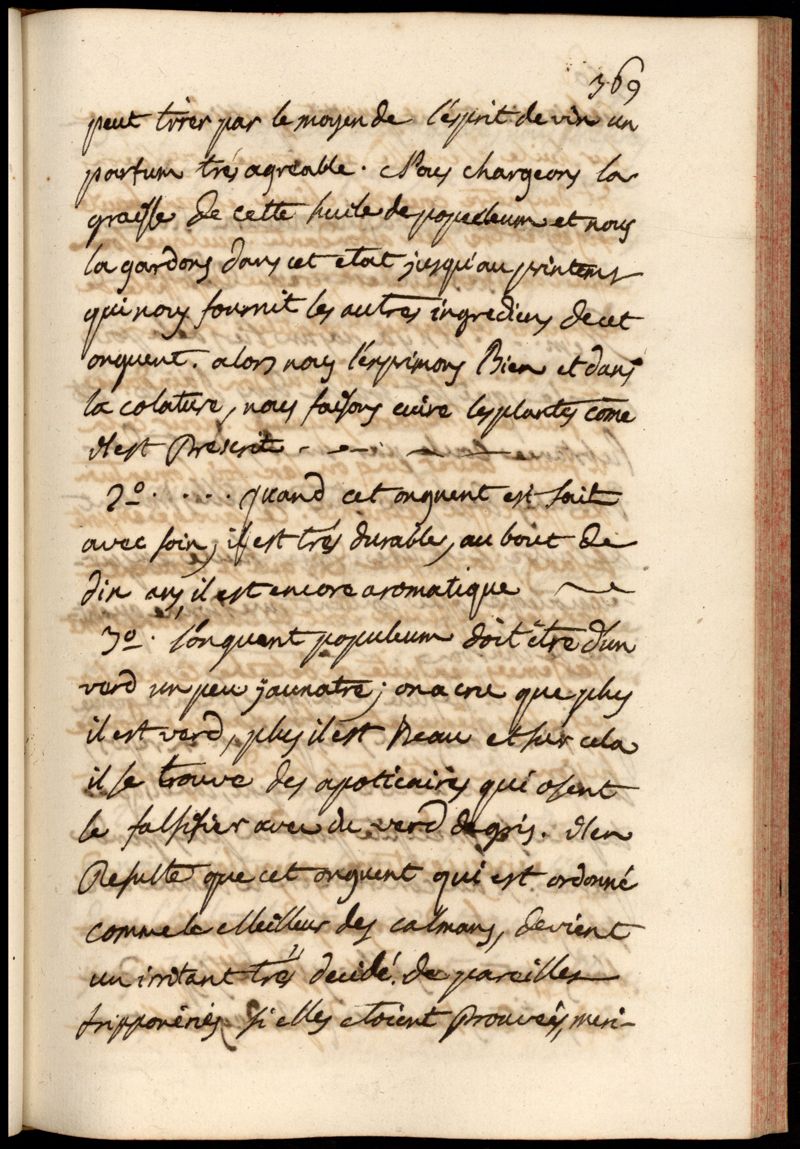 369
peut tirer par le moyen de l'esprit de vin un
parfum trés agreable. Nous chargeons la
graisse de cette huile de populeum et nous
la gardons dans cet etat jusqu'au printems
qui nous fournit les autres ingrediens de cet
onguent. alors nous l'exprimons Bien et dans
la colature, nous faisons cuire les plantes come
il est Prescrit
2º. . . . quand cet onguent est fait
avec soin, il est trés durable, au bout de
dix ans, il est encore aromatique
3º. L'onguent populeum doit être d'un
verd un peu jaunatre; on a cru que plus
il est verd, plus il est Beau et sur cela
il se trouve des apoticaires qui osent
le falsifier avec du verd de gris. il en
Resulte que cet onguent qui est ordonné
comme le Meilleur des calmans, devient
un irritant trés decidé. de pareilles
fripponéries si elles etoient Prouveés, meri-